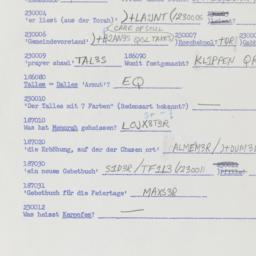 230004
'er liest (aus der Torah)' )+LAJNT (/230005
230006
'Gemeindevorstand' )+ 230007
230009 186090
'prayer shawl' TAL3S Womit festgemacht? KLIPPEN
186080
Talles = Dalles 'Armut'? EQ
230010
'Der Talles mit 7 Farben' (Redensart bekannt?) —
187010
Was hat Menorah geheissen? LOJX3T3R
187020
'die Erhöhung, auf der der Chasen ort' ALMEM3R /
187030
'ein neues Gebetbuch' S1D3R /TF1L3 (/230011
187031
'Gebetbuch für die Feiertage' MAXS3R
230012
Was heisst Karpofes? —